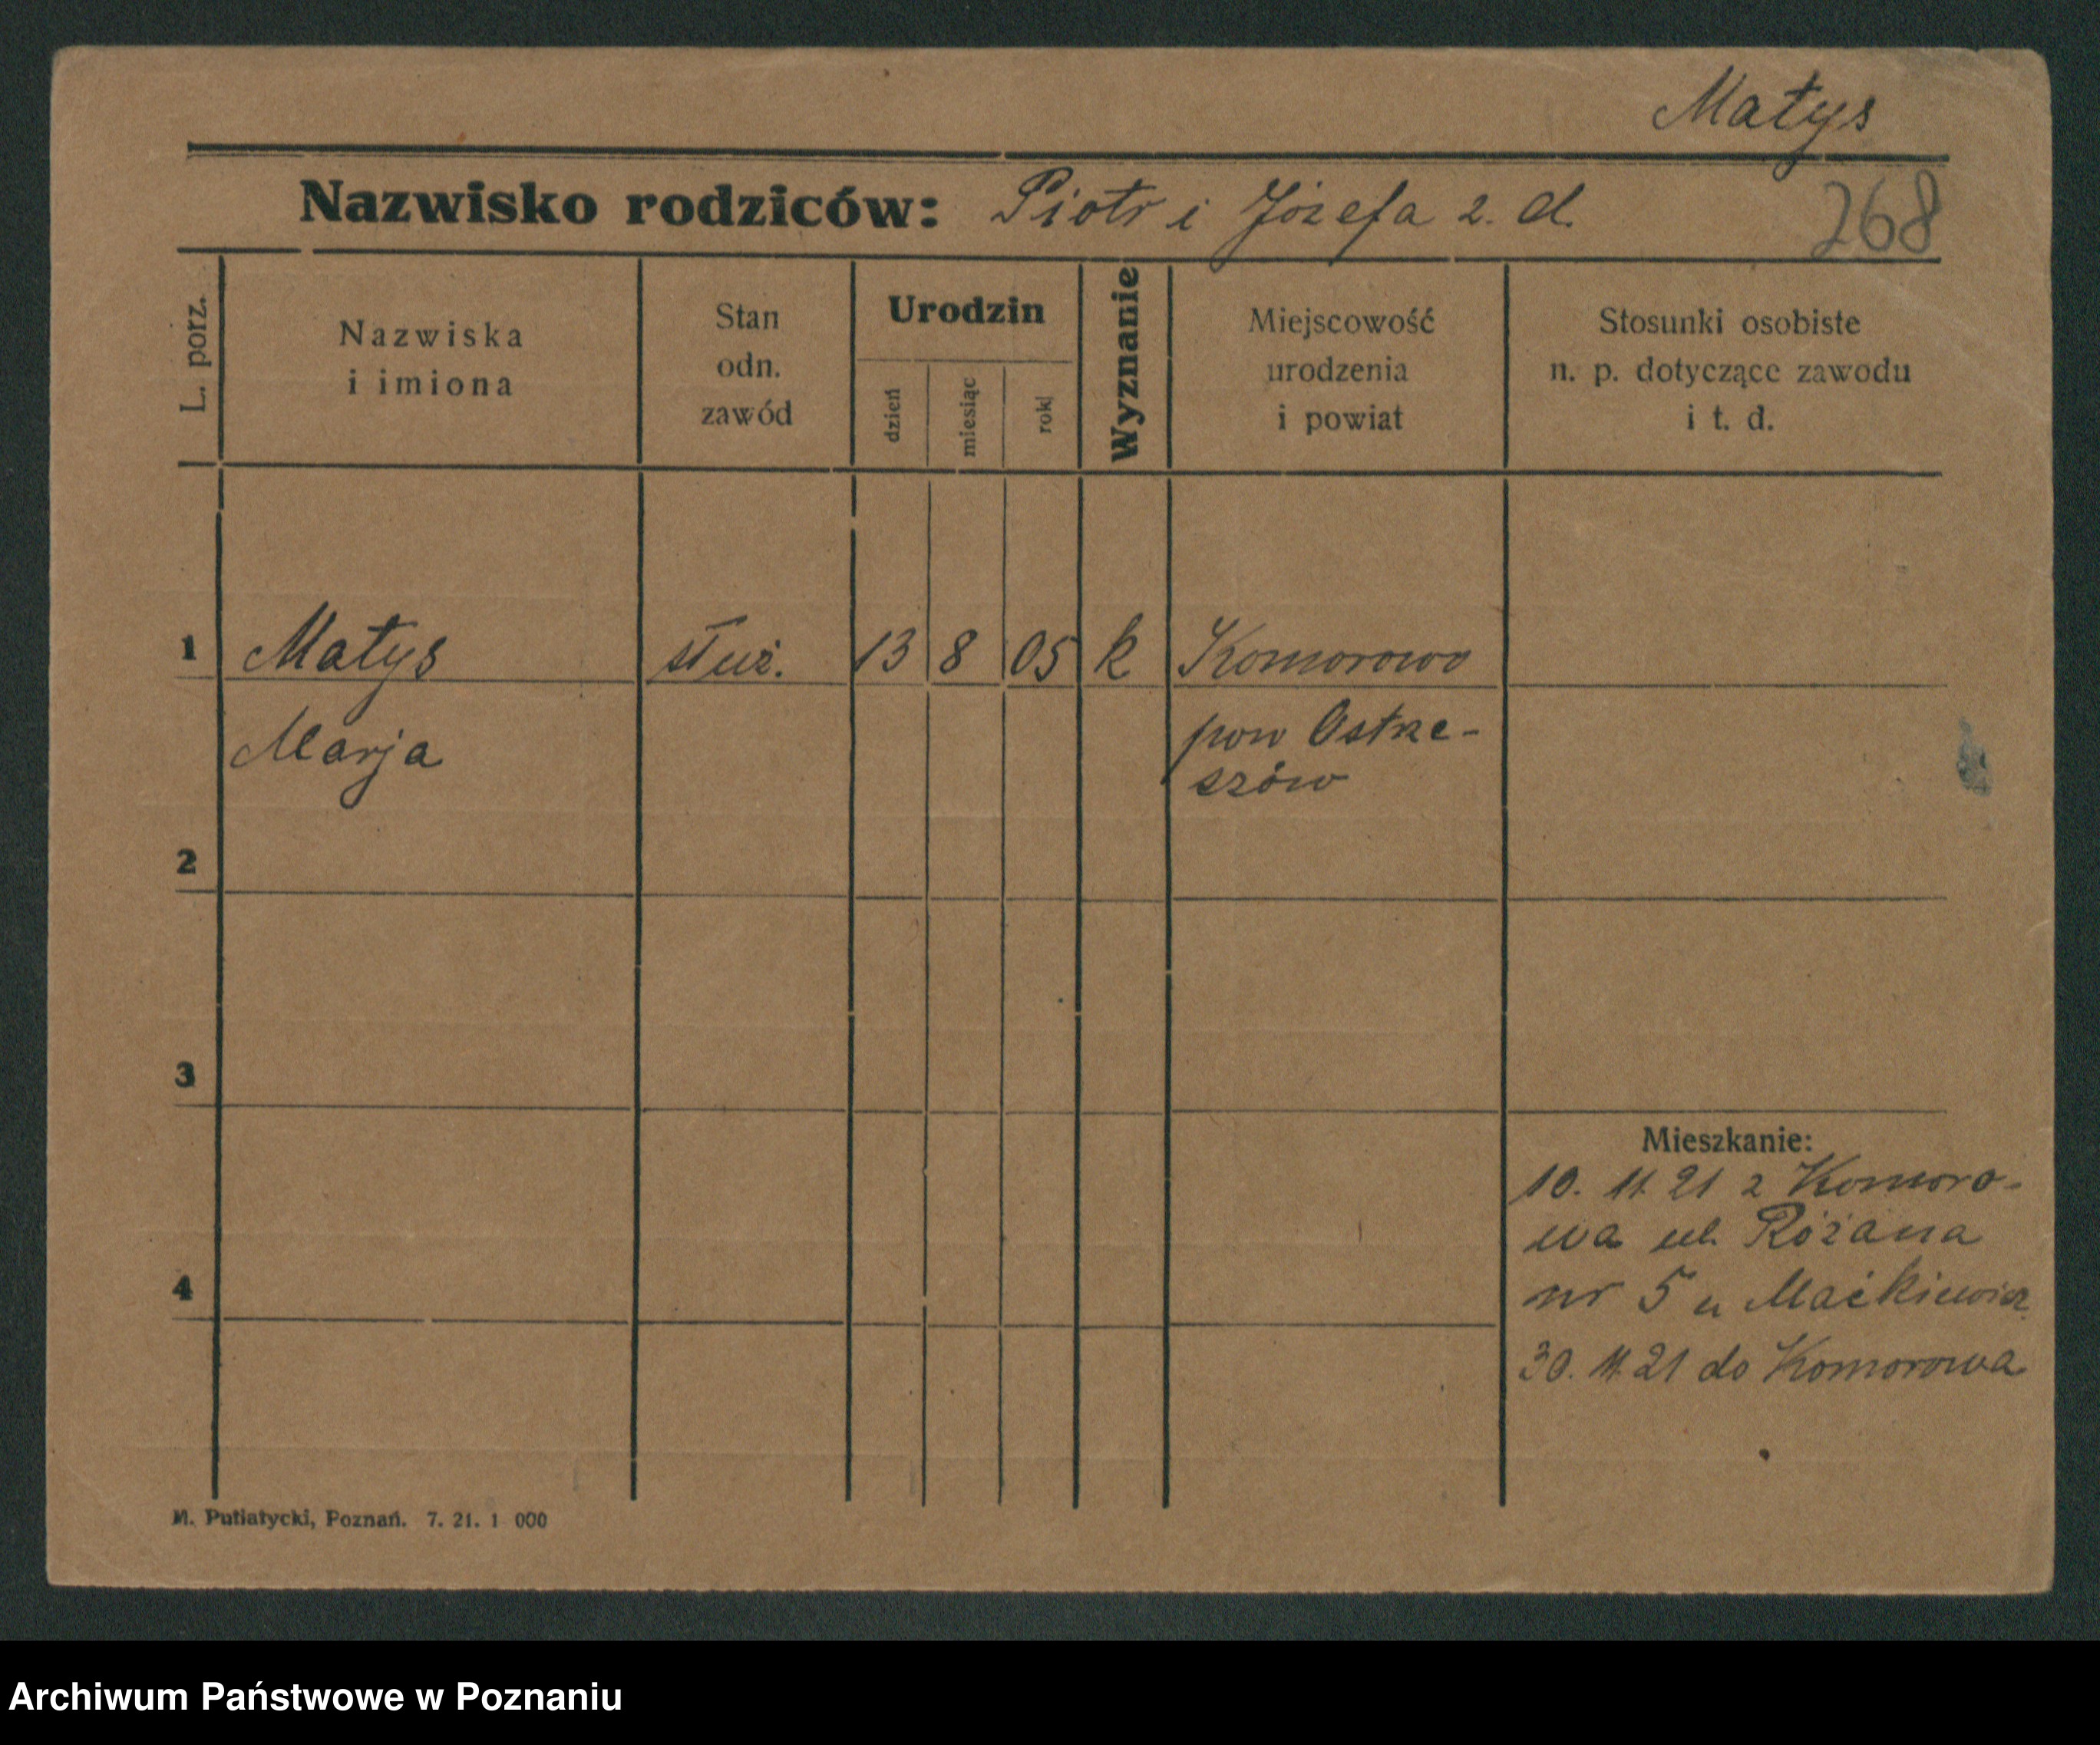 Matys
Nazwisko rodziców: Piotr i Józefa z. d.
268
L. porz.
Nazwiska
i imiona
Stan
odn.
zawód
Urodzin
dzień
miesiąc
rok
Wyznanie
Miejscowość
urodzenia
i powiat
Stosunki osobiste
n. p. dotyczące zawodu
i t. d.
1 Matys służ. 13 8 05 k Komorowo
Marja pow Ostrze-
szów
2
3
4
Mieszkanie:
10. 11. 21 z Komoro-
wa ul. Różana
nr 5 u Maćkiewicz
30. 11. 21 do Komorowa
M. Putiatycki, Poznań. 7. 21. 1 000
Archiwum Państwowe w Poznaniu